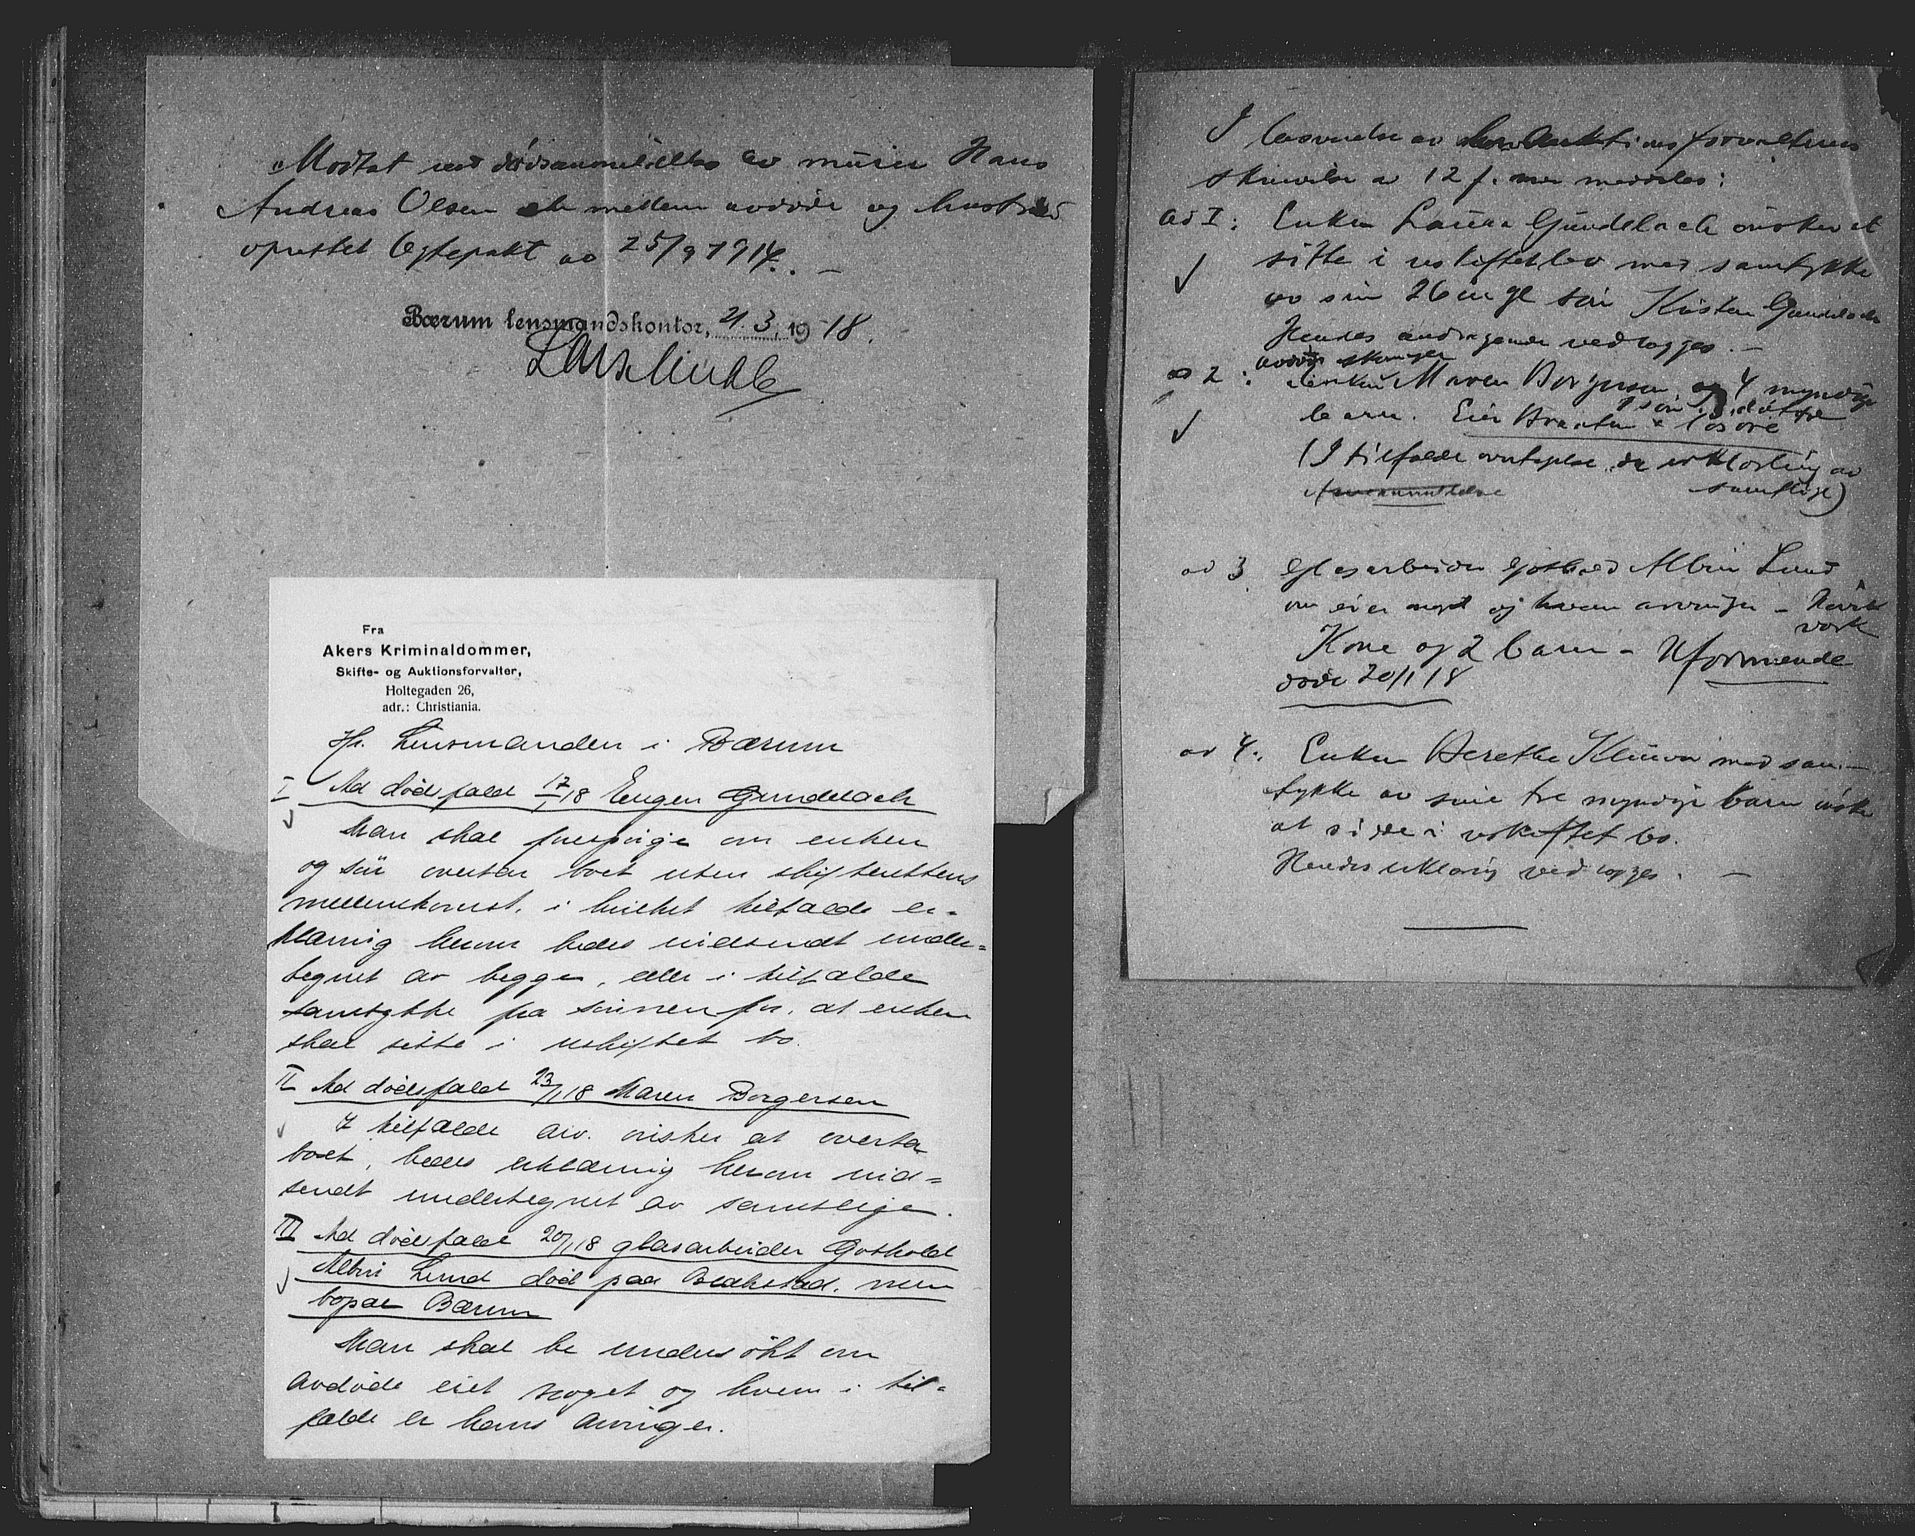 Modtat ved dødsanmeldelse av murer Hans
Andreas Olsen mellem avdøde og hustru
oprettet Egtepakt av 25/9 1914. —
Bærum lensmandskontor, 21. 3. 1918.
Fra
Akers Kriminaldommer,
Skifte- og Auktionsforvalter,
Holtegaden 26,
adr.: Christiania.
Hr. Lensmanden i Bærum
I Ad dødsfald 17/1 18 Eugen Gundelach
Man skal forespørge om enken
og søn overtar boet uten skifterettens
mellemkomst, i hvilket tilfælde er-
klæring herom bedes indsendt under-
tegnet av begge, eller i tilfælde
samtykke fra sønnen for, at enken
skal sitte i uskiftet bo.
II Ad dødsfald 23/1 18 Maren Borgersen
I tilfælde arv. ønsker at overta
boet, bedes erklæring herom ind-
sendt undertegnet av samtlige.
III Ad dødsfald 20/1 18 glasarbeider Gothold
Albin Lund død paa Blakstad, men
bopæl Bærum
Man skal be undersøkt om
avdøde eiet noget og hvem i til-
fælde er hans arvinger.
I besvarelse av Auktionsforvalterens
skrivelse av 12 f. m. meddeles:
ad I: Enken Laura Gundelach ønsker at
sitte i uskiftet bo med samtykke
av sin 26 aar gl. søn Kristen Gundelach
Hendes andragende vedlægges. —
ad 2: avdøde
enken Maren Borgersen og 4 myndige
1 søn 3 døtre
barn. Eier løsøre
(I tilfælde overtagelse, da erklæring av
samtlige)
ad 3 Glasarbeider Gothold Albin Lund
om eier noget og hvem arvinger —
Kone og 2 barn — Uformuende
døde 20/1 18
ad 4. Enken Berethe med sam-
tykke av sine tre myndige barn ønsker
at sidde i uskiftet bo.
Hendes erklæring vedlægges. —